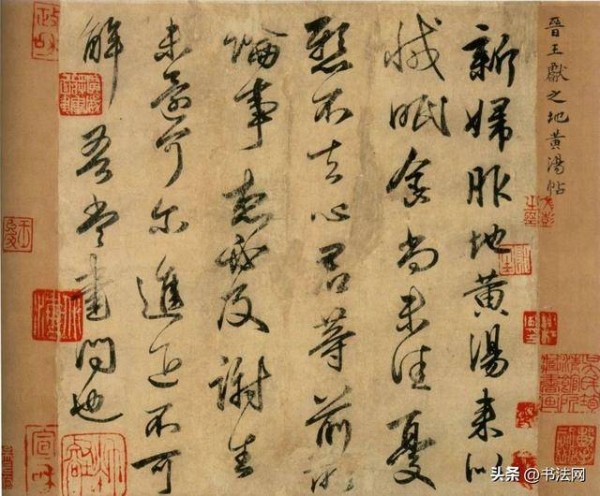 晉王獻之地黃湯帖
新婦服地黃湯來似
減眠食尚未佳憂
懸不去心君等前所
論事想必及謝生
未還可爾進退不可
解吾當書問也
政和
宣和
头条 @书法网